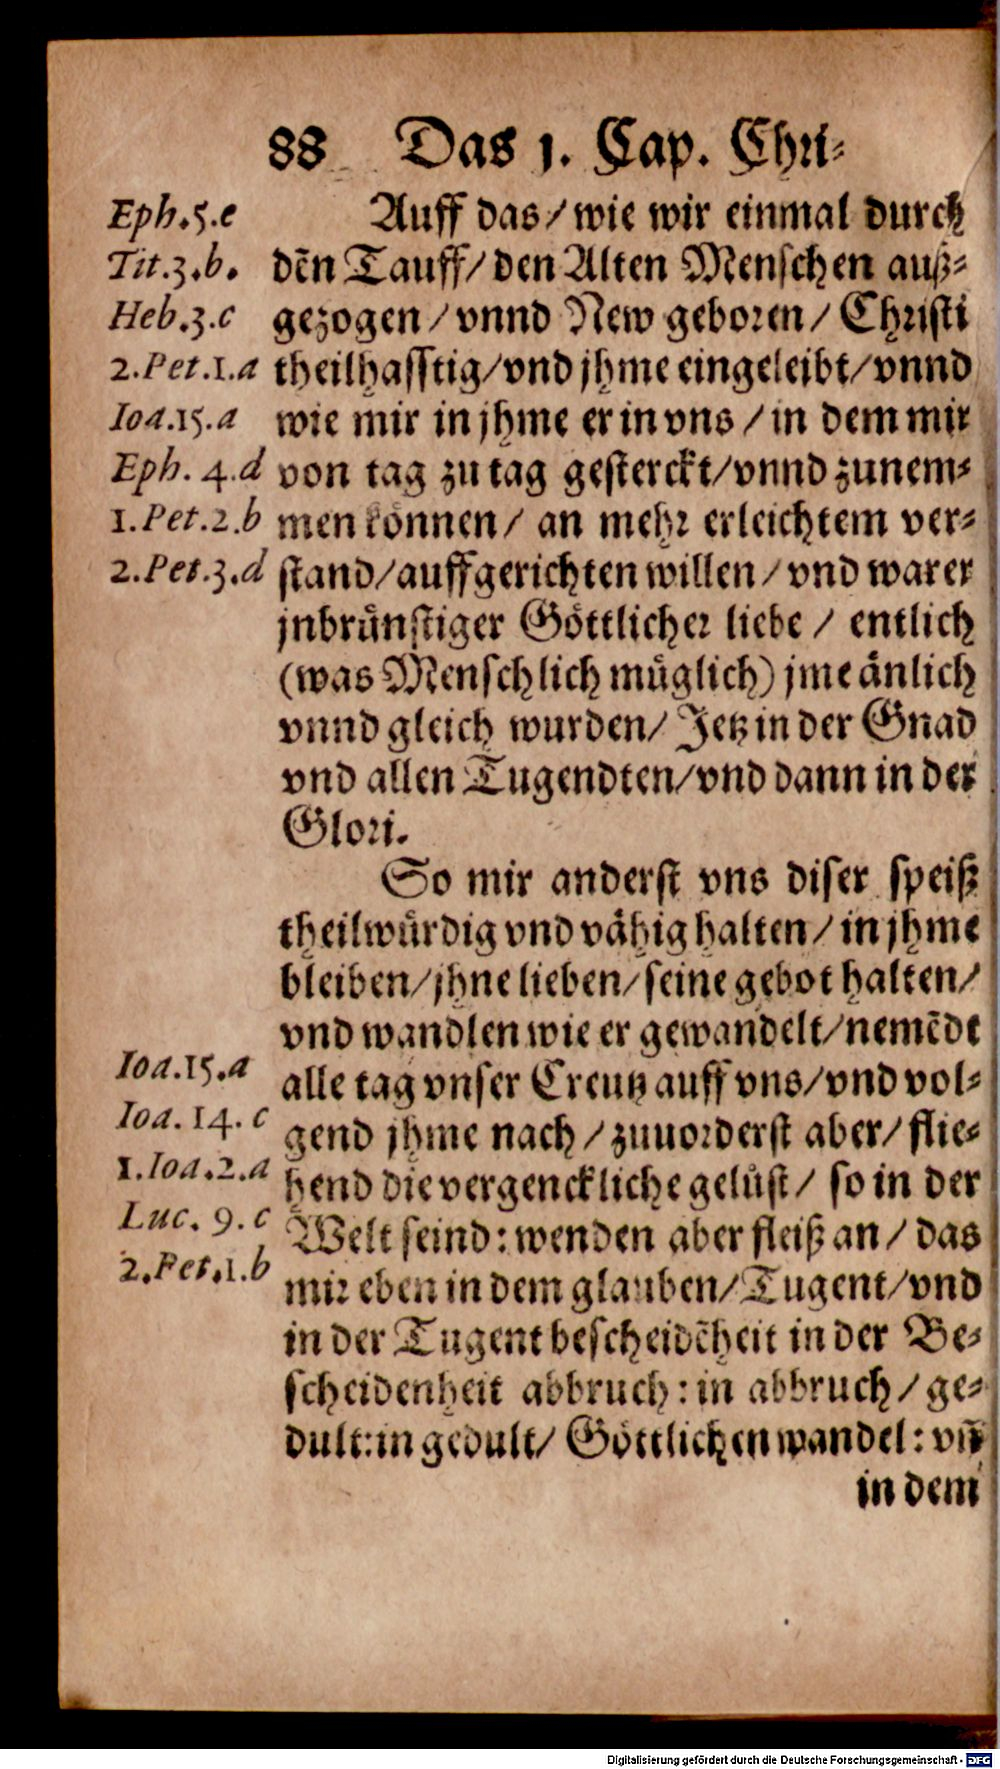 88 Das 1. Cap. Chri-
Eph.5.e
Tit.3.b.
Heb.3.c
2.Pet.1.a
Ioa.15.a
Eph. 4.d
1.Pet.2.b
2.Pet.3.d
Auff das/ wie wir einmal durch
dẽn Tauff/ den Alten Menschen auß-
gezogen/ vnnd New geboren/ Christi
theilhafftig/ vnd jhme eingeleibt/ vnnd
wie mir in jhme er in vns/ in dem mir
von tag zu tag gesterckt/ vnnd zunem-
men können/ an mehr erleichtem ver-
stand/ auffgerichten willen/ vnd warer
jnbrünstiger Göttlicher liebe/ entlich
(was Menschlich müglich) jme änlich
vnnd gleich wurden/ Jetz in der Gnad
vnd allen Tugendten/ vnd dann in der
Glori.
So mir anderst vns diser speiß
theilwürdig vnd vähig halten/ in jhme
bleiben/ jhne lieben/ seine gebot halten/
vnd wandlen wie er gewandelt/ nemẽdt
alle tag vnser Creutz auff vns/ vnd vol-
gend jhme nach/ zuuorderst aber/ flie-
hend die vergenckliche gelüst/ so in der
Welt seind: wenden aber fleiß an/ das
mir eben in dem glauben/ Tugent/ vnd
in der Tugent bescheidẽheit in der Be-
scheidenheit abbruch: in abbruch/ ge-
dult: in gedult/ Göttlichen wandel: vñ
in dem
Ioa.15.a
Ioa. 14. c
1.Ioa.2.a
Luc. 9. c
2.Pet.1.b
Digitalisierung gefördert durch die Deutsche Forschungsgemeinschaft - DFG